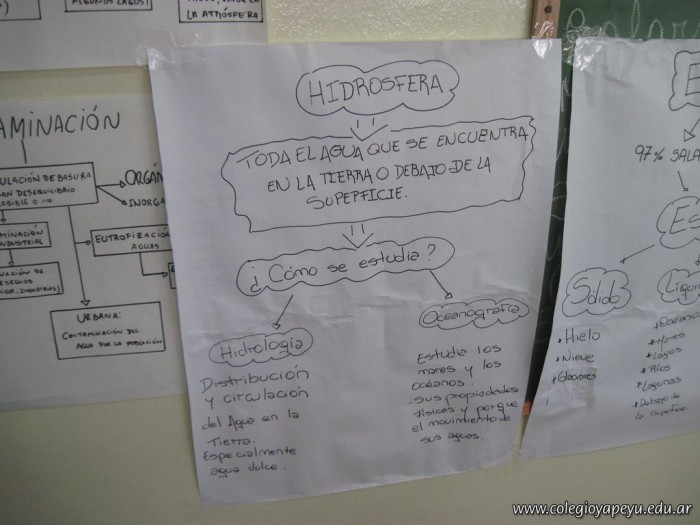 ALGUNOS LAGOS)
LA ATMÓSFERA
AMINACIÓN
ULACIÓN DE BASURA
AN DESEQUILIBRIO
ORGÁN
INORGA
MINACIÓN
DUSTRIAL
EUTROFIZACIÓ
AGUAS
URBANA:
CONTAMINACIÓN DEL
AGUA POR LA POBLACIÓN
HIDROSFERA
TODA EL AGUA QUE SE ENCUENTRA
EN LA TIERRA O DEBAJO DE LA
SUPERFICIE.
¿Cómo se estudia?
Hidrología
Distribución
y circulación
del Agua en la
Tierra.
Especialmente
agua dulce.
Oceanografía
Estudia los
mares y los
océanos.
Sus propiedades
físicas y porque
el movimiento de
sus aguas.
E
97% SALA
Es
Solido
• Hielo
• Nieve
• Glaciares
Liqui
Mares
Lagos
Ríos
Lagunas
Debajo de
la superficie
www.colegioyapeyu.edu.ar